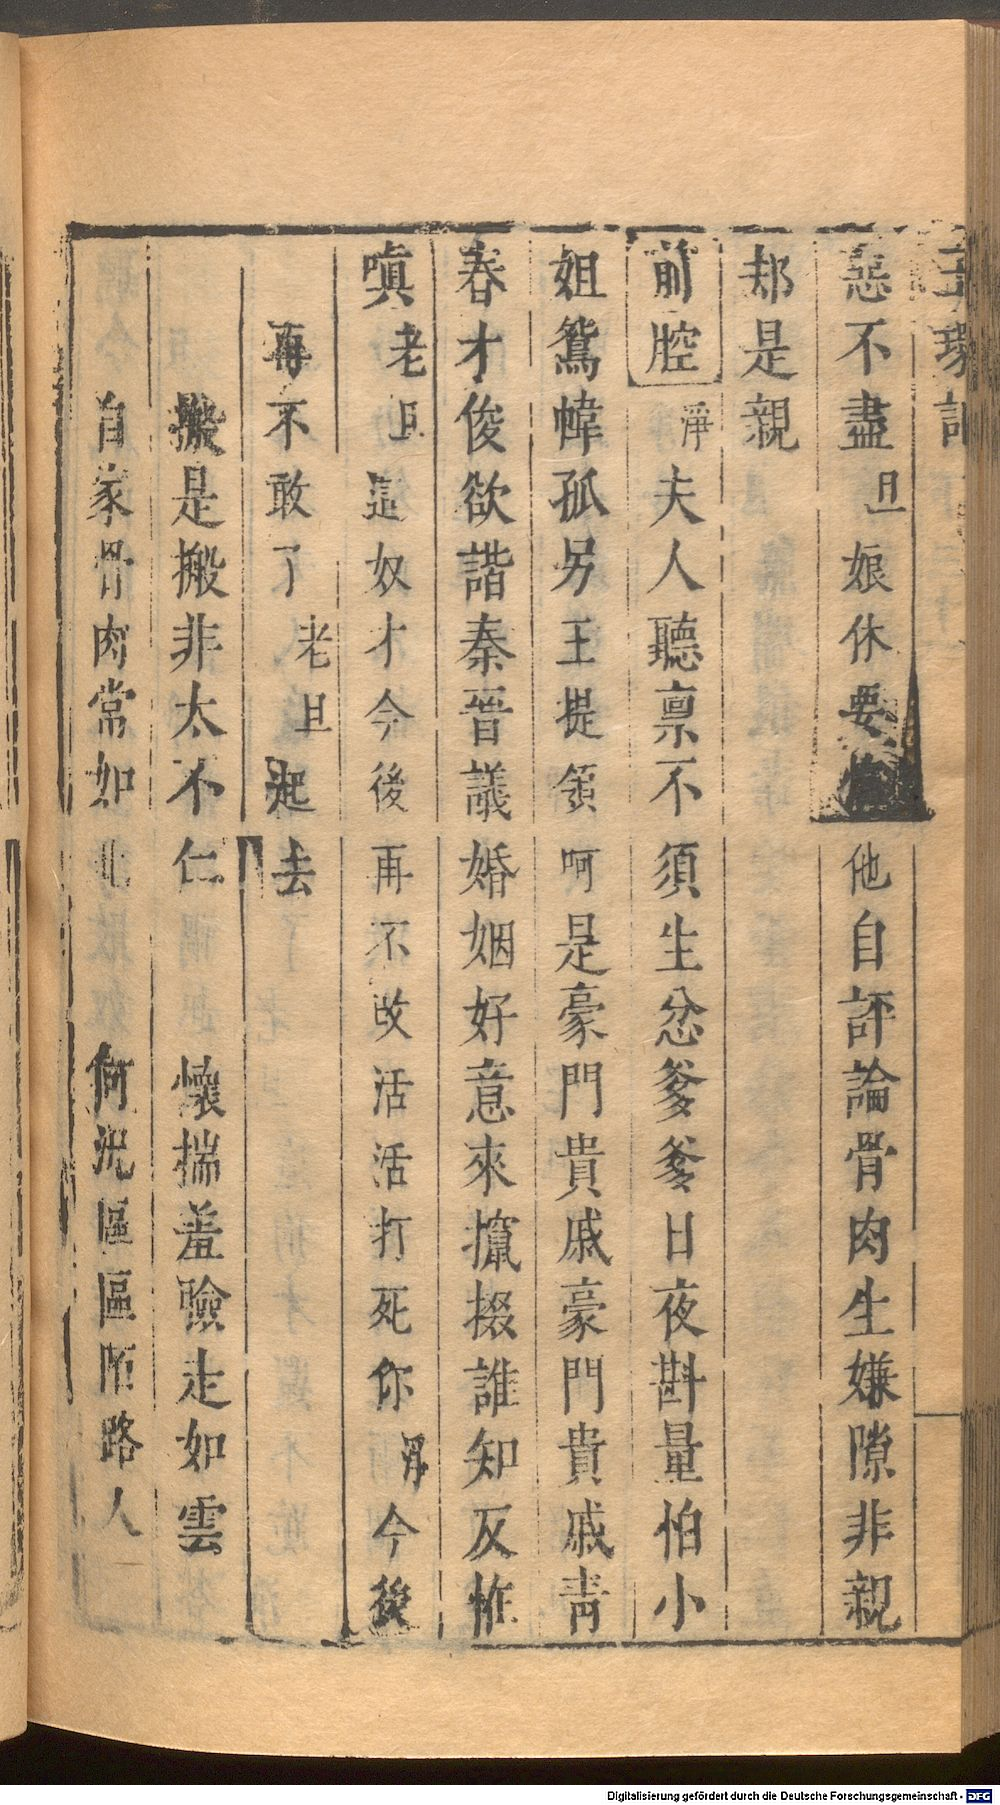 玉環記
惡不盡旦娘休要他自評論骨肉生嫌隙非親
却是親
前腔淨夫人聽禀不須生忿爹爹日夜斟量怕小
姐鴛幃孤另王提領呵是豪門貴戚豪門貴戚靑
春才俊欲諧秦晉議婚姻好意來攛掇誰知反惟
嗔老旦這奴才今後再不改活活打死你淨今後
再不敢了老旦起去
搬是搬非太不仁 懷揣羞臉走如雲
自家骨肉常如此 何況區區陌路人
Digitalisierung gefördert durch die Deutsche Forschungsgemeinschaft - DFG